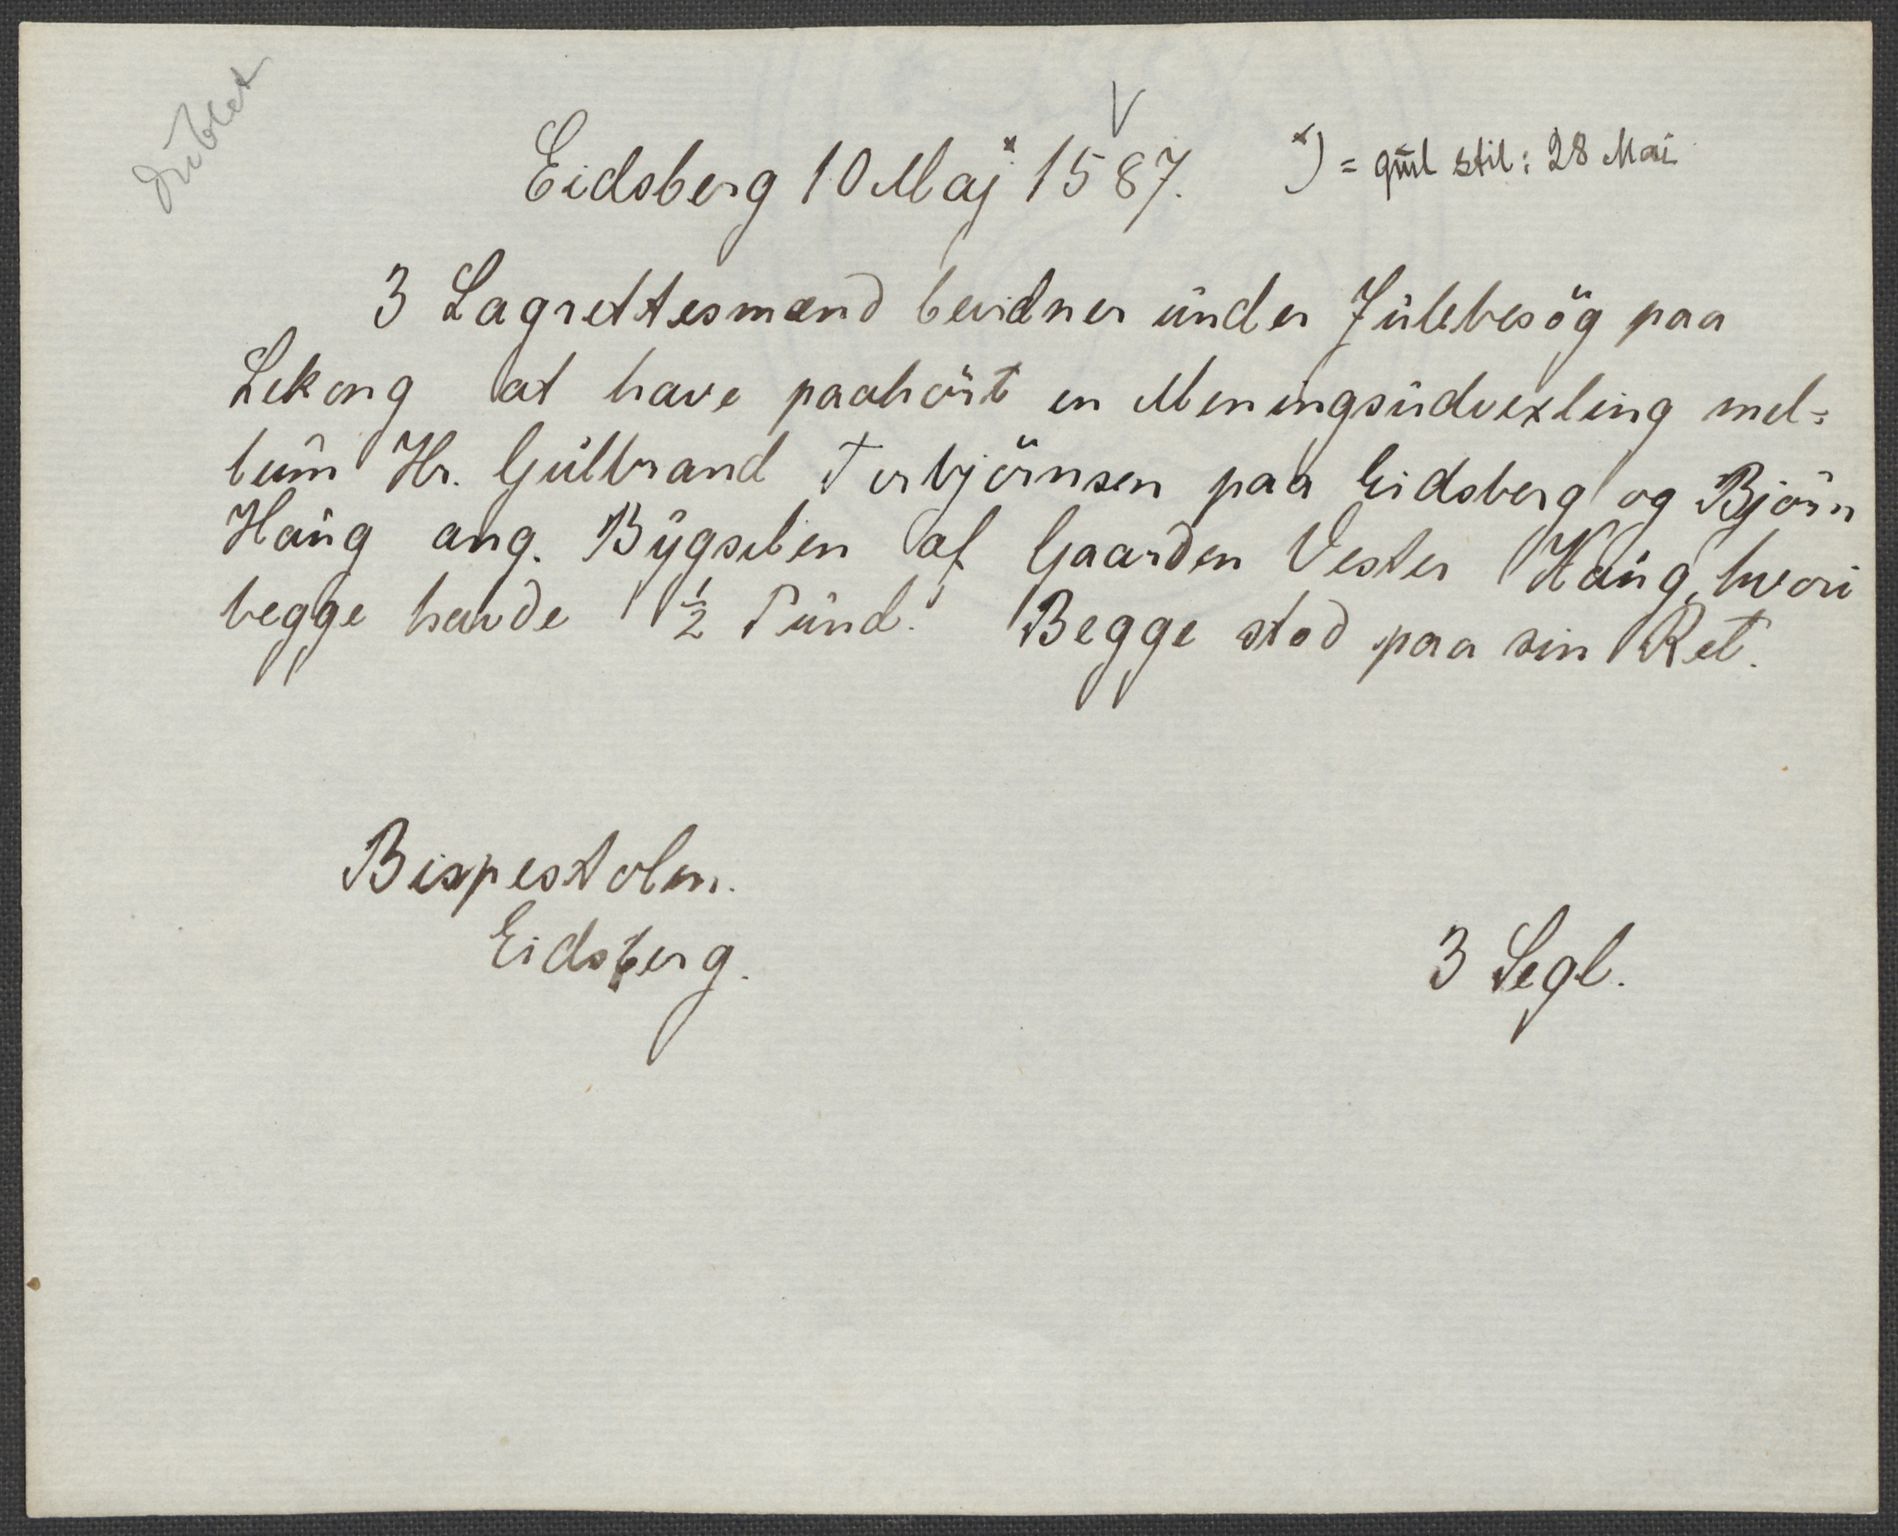 dublet
V
Eidsberg 10 Maj x 1587. x) = gml stil: 28 Mai
3 Lagrettesmænd bevidner under Julebesög paa
Lekong at have paahört en Meningsudvexling mel=
lum Hr. Gulbrand Torbjörnsen paa Eidsberg og Björn
Haug ang. Bygselen af Gaarden Vester Haug, hvori
begge havde 1/2 Pund. Begge stod paa sin Ret.
Bispestolen.
Eidsberg.
3 Segl.